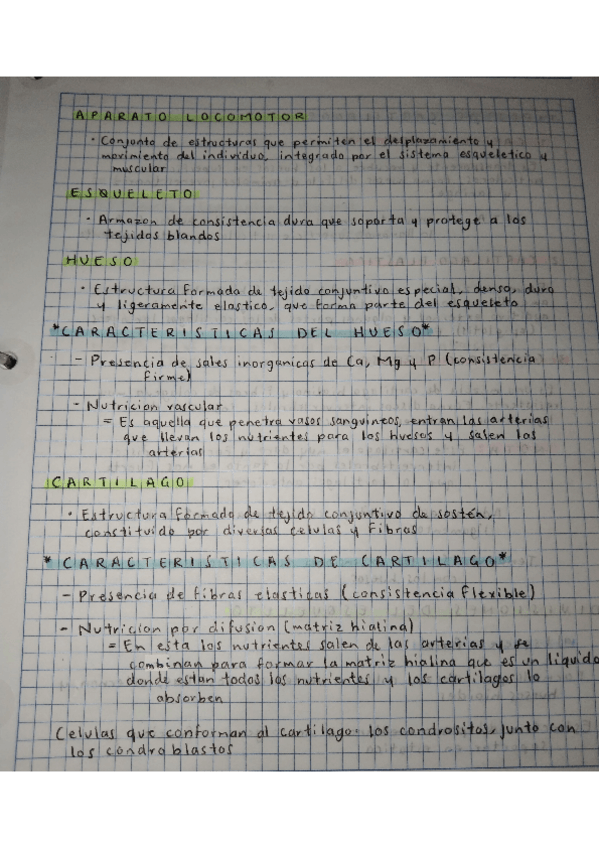 APARATO LOCOMOTOR
· Conjunto de estructuras que permiten el desplazamiento y
movimiento del individuo, integrado por el sistema esqueletico y
muscular
ESQUELETO
· Armazon de consistencia dura que soporta y protege a los
tejidos blandos
HUESO
· Estructura formada de tejido conjuntivo especial, denso, duro
y ligeramente elastico, que forma parte del esqueleto
*CARACTERISTICAS DEL HUESO*
- Presencia de sales inorganicas de Ca, Mg y P (consistencia
firme)
- Nutricion vascular
= Es aquella que penetra vasos sanguineos, entran las arterias
que llevan los nutrientes para los huesos y salen las
arterias
CARTILAGO
· Estructura formada de tejido conjuntivo de sostén,
constituido por diversas celulas y fibras
*CARACTERISTICAS DE CARTILAGO*
- Presencia de fibras elasticas (consistencia flexible)
- Nutricion por difusion (matriz hialina)
= En esta los nutrientes salen de las arterias y se
combinan para formar la matriz hialina que es un liquido
donde estan todos los nutrientes y los cartilagos lo
absorben
Celulas que conforman al cartilago: los condrositos, junto con
los condroblastos